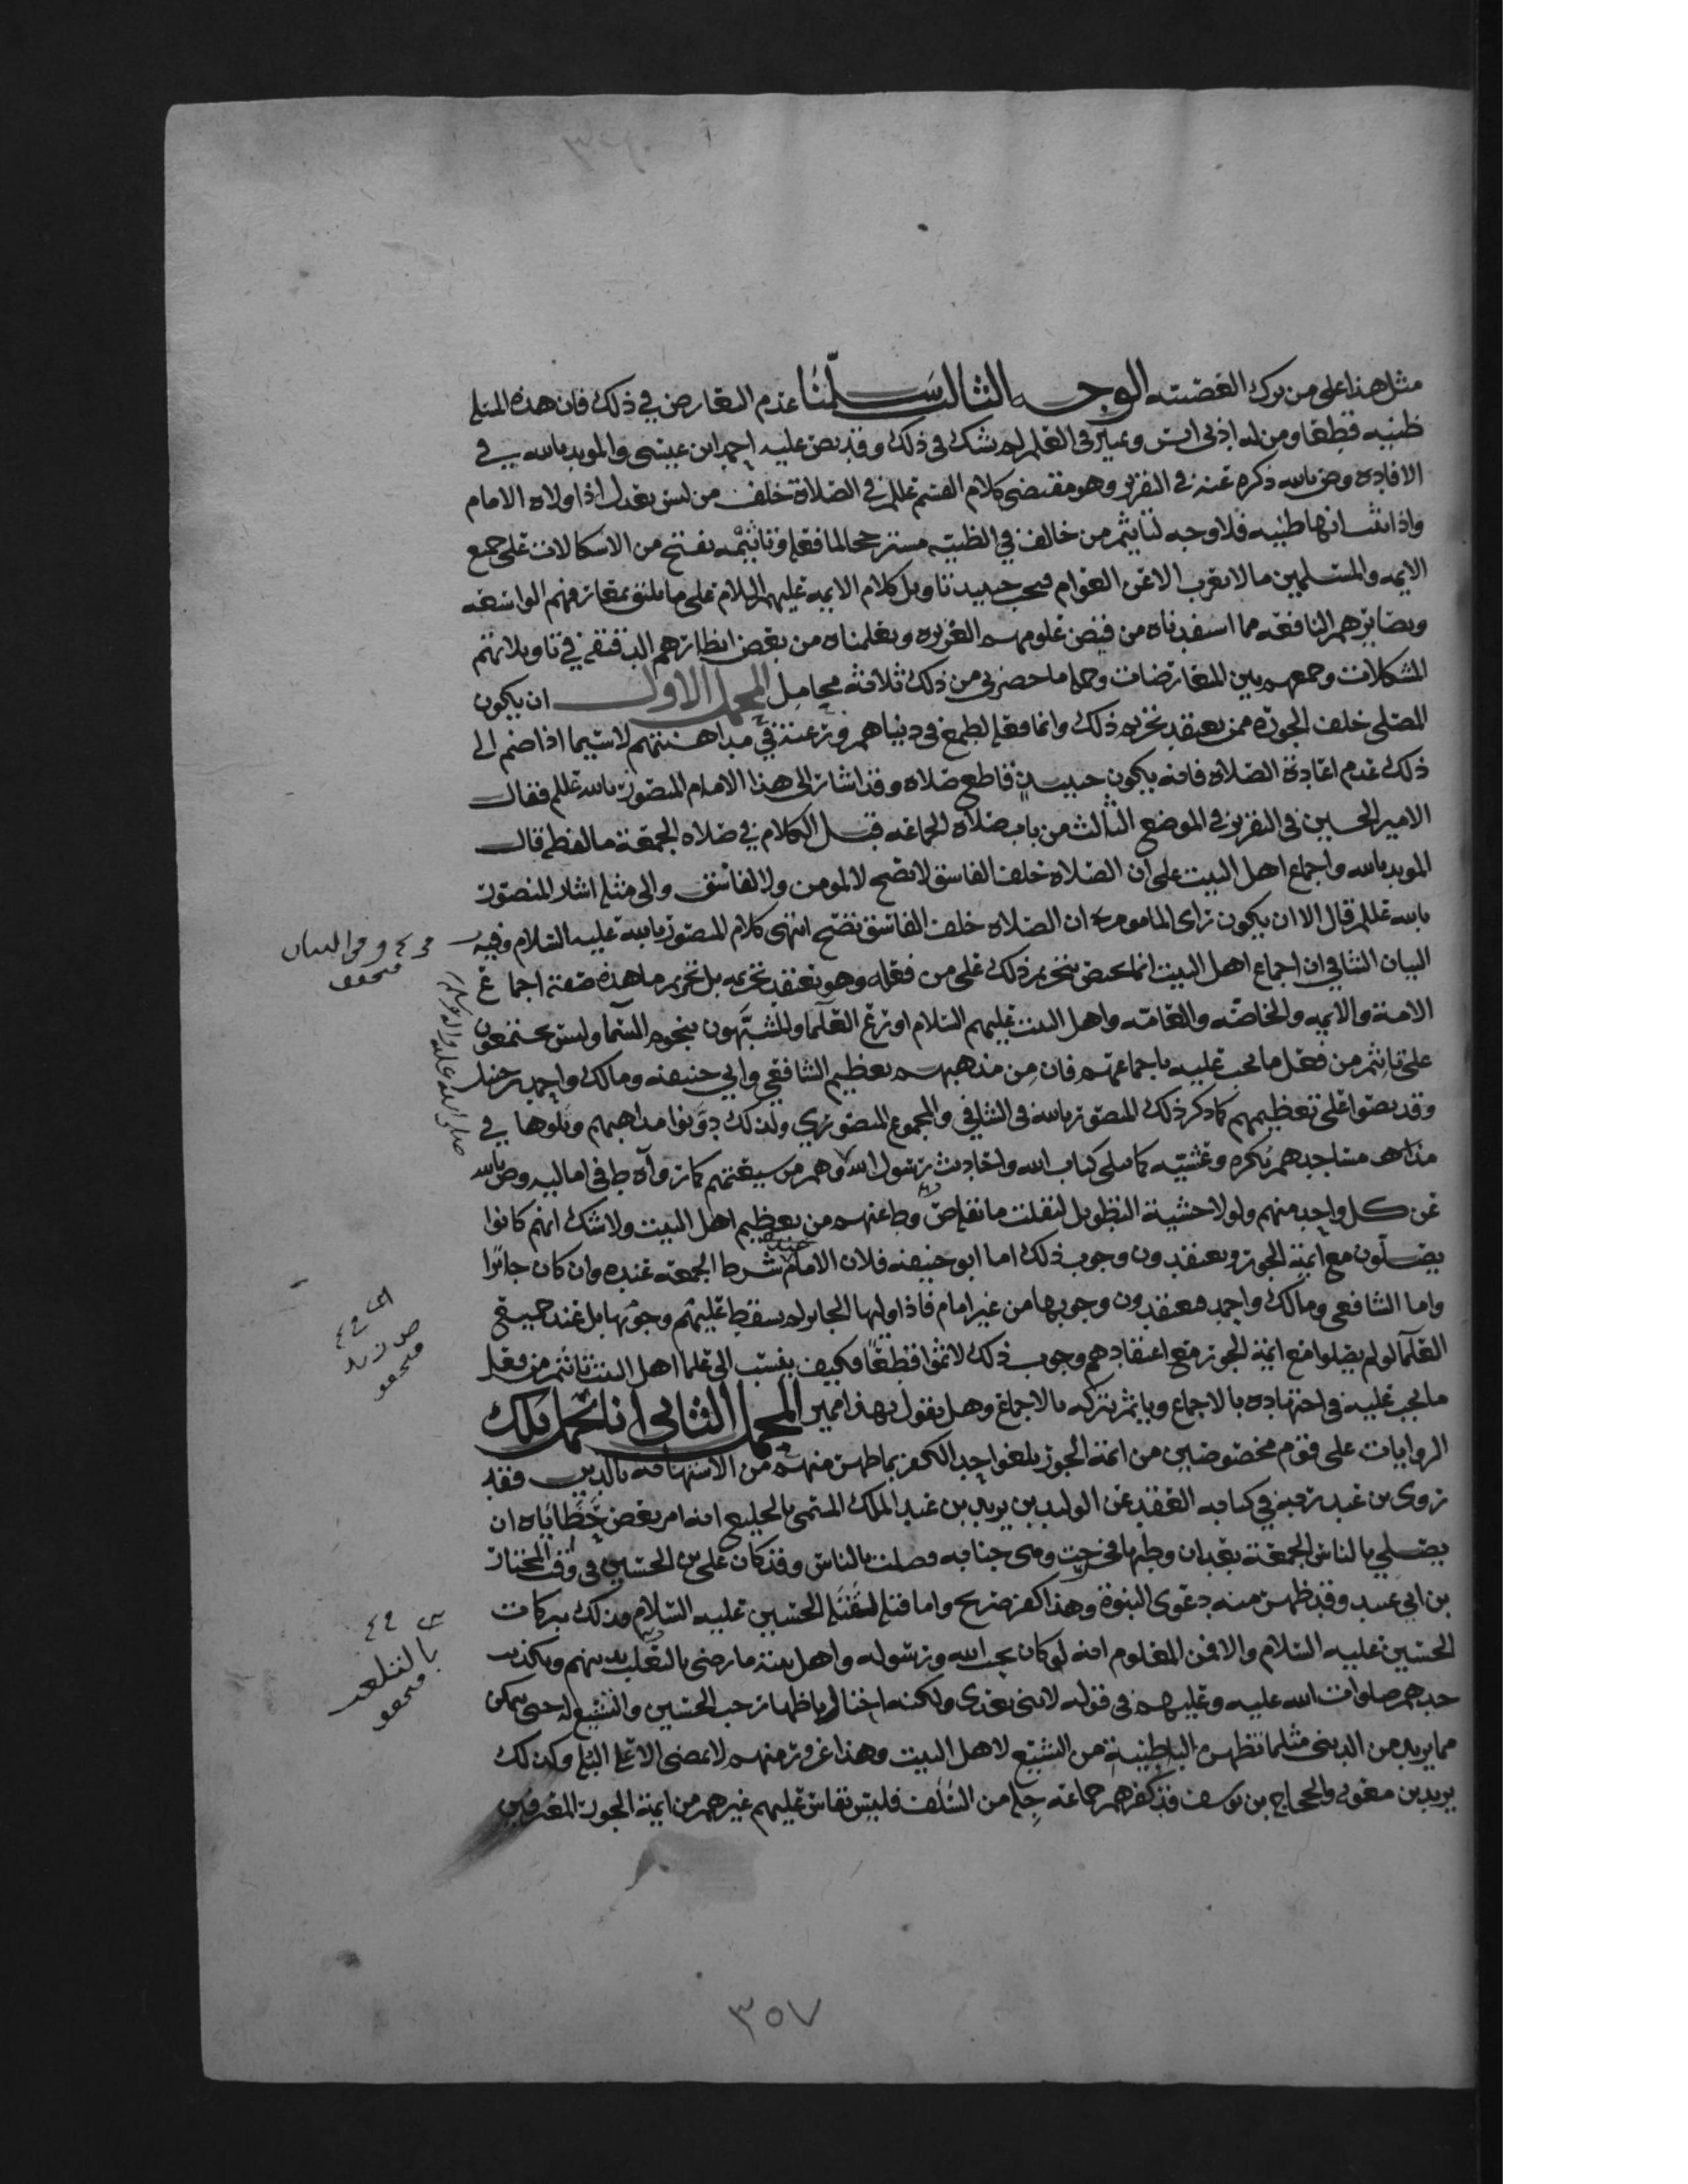 مثل هذا على من ترك الغضبته الوجه الثالث سلمنا عدم التعارض في ذلك فان هذه المسئله
ظنيه قطعا ومن له ادنى انس وتمييز في العلم لم يشك في ذلك وقد نص عليه احمد ابن عيسى والمويد بالله في
الافاده وص بالله ذكره عنه في التقرير وهو مقتضى كلام القسم عللم في الصلاة خلف من ليس بعدل اذا ولاه الامام
واذا ثبت انها ظنيه فلا وجه لتاثيم من خالف في الظنيه مسترجحا لما فعله وتاثيمه يفتح من الاشكالات على جميع
الايمه والمسلمين ما لا يقرب الا عن العوام فيجب حينيد تاويل كلام الايمه عليهم السلام على ما يليق بمعارفهم الواسعه
وبصايرهم النافعه مما استفدناه من فيض علومهم الغزيره وتعلمناه من بعض انظارهم الدقيقه في تاويلاتهم
المشكلات وجمعهم بين المتعارضات وجملة ما حضرني من ذلك ثلاثه محامل المحمل الاول ان يكون
المصلي خلف الجورة ممن يعتقد تحريم ذلك وانما فعله لطمع في دنياهم ورغبة في مداهنتهم لا سيما اذا ضم الى
ذلك عدم اعادة الصلاة فانه يكون حينيد قاطع صلاه وقد اشار الى هذا الامام المنصور بالله عللم فقال
الامير الحسين في التقرير في الموضع الثالث من باب صلاة الجماعه قبل الكلام في صلاه الجمعة ما لفظه قال
المويد بالله واجماع اهل البيت على ان الصلاة خلف الفاسق لا تصح لا لمومن ولا لفاسق والى مثله اشار المنصور
بالله عللم قال الا ان يكون راى الماموم ان الصلاه خلف الفاسق تصح انتهى كلام المنصور بالله عليه السلام وفيه
البيان الشافي ان اجماع اهل البيت انما يختص بتحريم ذلك على من فعله وهو يعتقد تحريمه بل تحريم ما هذه صفته اجماع
الامة والايمه والخاصه والعامه واهل البيت عليهم السلام اورع العلما والمشبهون بنجوم السما وليس يجتمعون
على تاثيم من فعل ما يجب عليه باجماعهم فان من مذهبهم تعظيم الشافعي وابي حنيفه ومالك واحمد بن حنبل
وقد نصوا على تعظيمهم كما ذكر ذلك المنصور بالله في الشافي والمجموع المنصوري ولذلك دونوا مذاهبهم وتلوها في
مساجدهم بكره وعشيه كما يتلى كتاب الله واحاديث رسول الله وهم من شيعتهم كما رواه ط في اماليه وص بالله
عن كل واحد منهم ولولا خشية التطويل لنقلت ما نقله ص وط عنهم من تعظيم اهل البيت ولا شك انهم كانوا
يصلون مع ايمة الجور ويعتقدون وجوب ذلك اما ابو حنيفه فلان الامام شرط الجمعه عنده وان كان جائرا
واما الشافعي ومالك واحمد فيعتقدون وجوبها من غير امام فاذا وليها الجاير لم يسقط عليهم وجوبها بل عند جميع
العلما لو لم يصلوا مع ايمة الجور مع اعتقادهم وجوب ذلك لاثموا قطعا فكيف ينسب الى علما اهل البيت تاثيم من فعل
ما يجب عليه في اجتهاده بالاجماع وياثم بتركه بالاجماع وهل يقول بهذا مميز المحمل الثاني انا نحمل تلك
الروايات على قوم مخصوصين من ائمة الجور بلغوا حد الكفر بما ظهر منهم من الاستهانه بالدين فقد
روى بن عبد ربه في كتابه العقد عن الوليد بن يزيد بن عبد الملك المسمى بالخليع انه امر بعض خطاياه ان
يصلي بالناس الجمعة بعد ان وطيها في وهي جنابه فصلت بالناس وقد كان علي بن الحسين في وقت المختار
بن ابي عبيد وقد ظهر منه دعوى النبوة وهذا كفر صريح واما قتله لقتلة الحسين عليه السلام فذلك ببركات
الحسين عليه السلام والا فمن المعلوم انه لو كان يحب الله ورسوله واهل بيته ما رضي بالتغلب بدينهم وتكذيب
جدهم صلوات الله عليه وعليهم في قوله لا نبي بعدي ولكنه احتال باظهار حب الحسين والتشيع له حتى تمكن
مما يريد من الدنيا مثلما تظهره الباطنية من التشيع لاهل البيت وهذا غرور منهم لا يمضي الا على البله وكذلك
يزيد بن معويه والحجاج بن يوسف قد كفرهم جماعه جله من السلف فليس يقاس عليهم غيرهم من ايمة الجور المعترفين
صلى الله عليه واله وسلم
٣٥٧